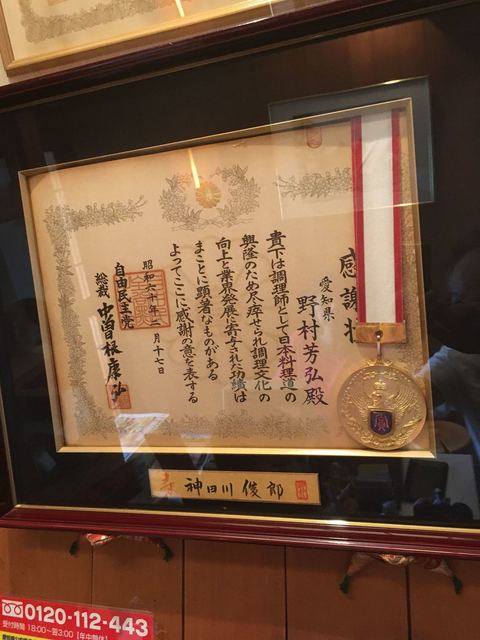 感謝状
愛知県
野村芳弘殿
貴下は調理師として日本料理道の
興隆のため尽瘁せられ調理文化の
向上と業界発展に寄与された功績は
まことに顕著なものがある
よってここに感謝の意を表する
昭和六十年二月十七日
自由民主党
総裁 中曽根康弘
賞
神田川俊郎
0120-112-443
受付時間 18:00〜翌3:00【年中無休】